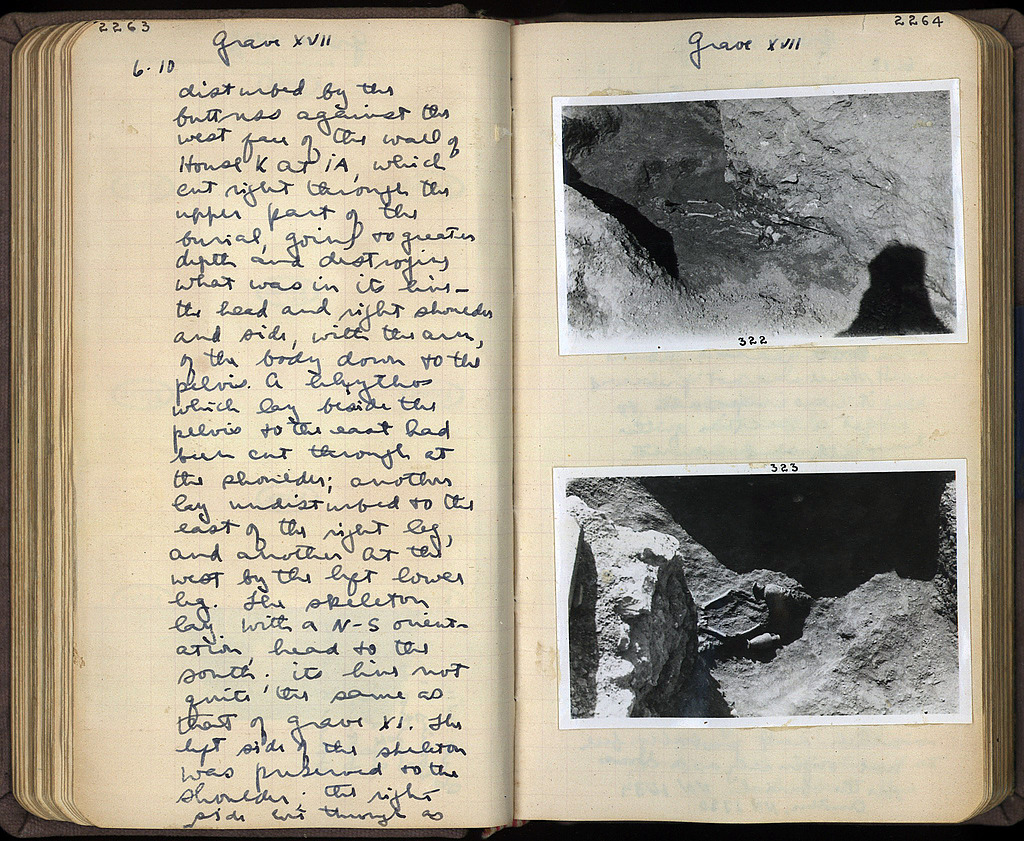 2263
Grave XVII
6.10
disturbed by the
buttress against the
west face of the wall of
House K at iA, which
cut right through the
upper part of the
burial, going to greater
depth and destroying
what was in its line –
the head and right shoulder
and side, with the arm,
of the body down to the
pelvis. A lekythos
which lay beside the
pelvis to the east had
been cut through at
the shoulder; another
lay undisturbed to the
east of the right leg,
and another at the
west by the left lower
leg. The skeleton
lay with a N-S orient-
ation, head to the
south; its line not
quite the same as
that of grave XI. The
left side of the skeleton
was preserved to the
shoulder; the right
side cut through as
2264
Grave XVII
322
323